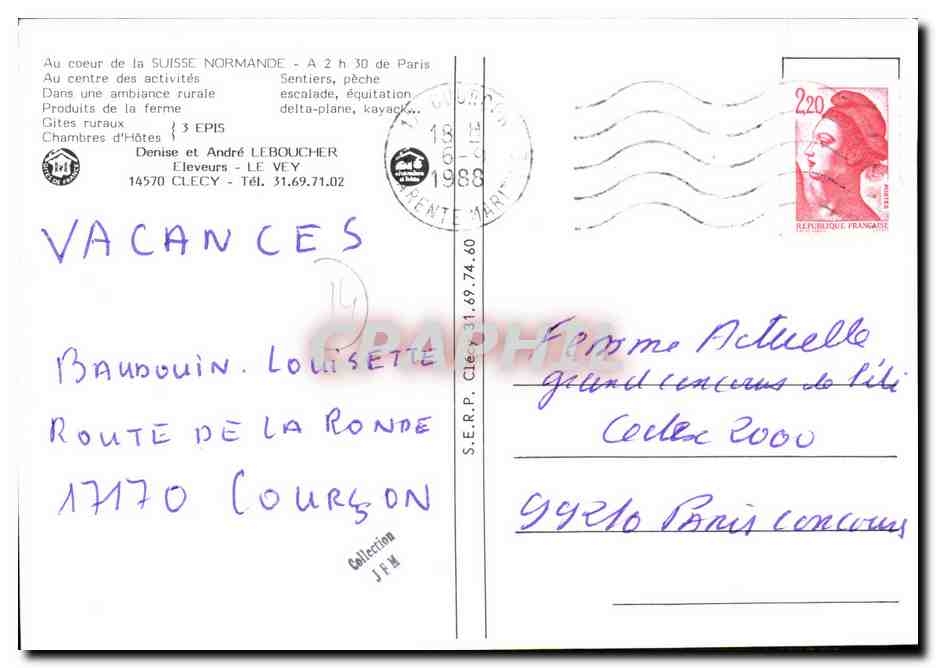 Au coeur de la SUISSE NORMANDE - A 2 h 30 de Paris
Au centre des activités
Sentiers, pêche
Dans une ambiance rurale
escalade, équitation
Produits de la ferme
delta-plane, kayack...
Gites ruraux
Chambres d'Hôtes
} 3 EPIS
Denise et André LEBOUCHER
Eleveurs - LE VEY
14570 CLECY - Tél. 31.69.71.02
18 H
6-8
1988
2,20
POSTES
REPUBLIQUE FRANÇAISE
VACANCES
14
BAUDOUIN. LOUISETTE
ROUTE DE LA RONDE
17170 COURÇON
Collection
JFM
S.E.R.P. Clécy 31.69.74.60
Femme Actuelle
grand concours de l'été
Cedex 2000
99210 PARIS CONCOURS